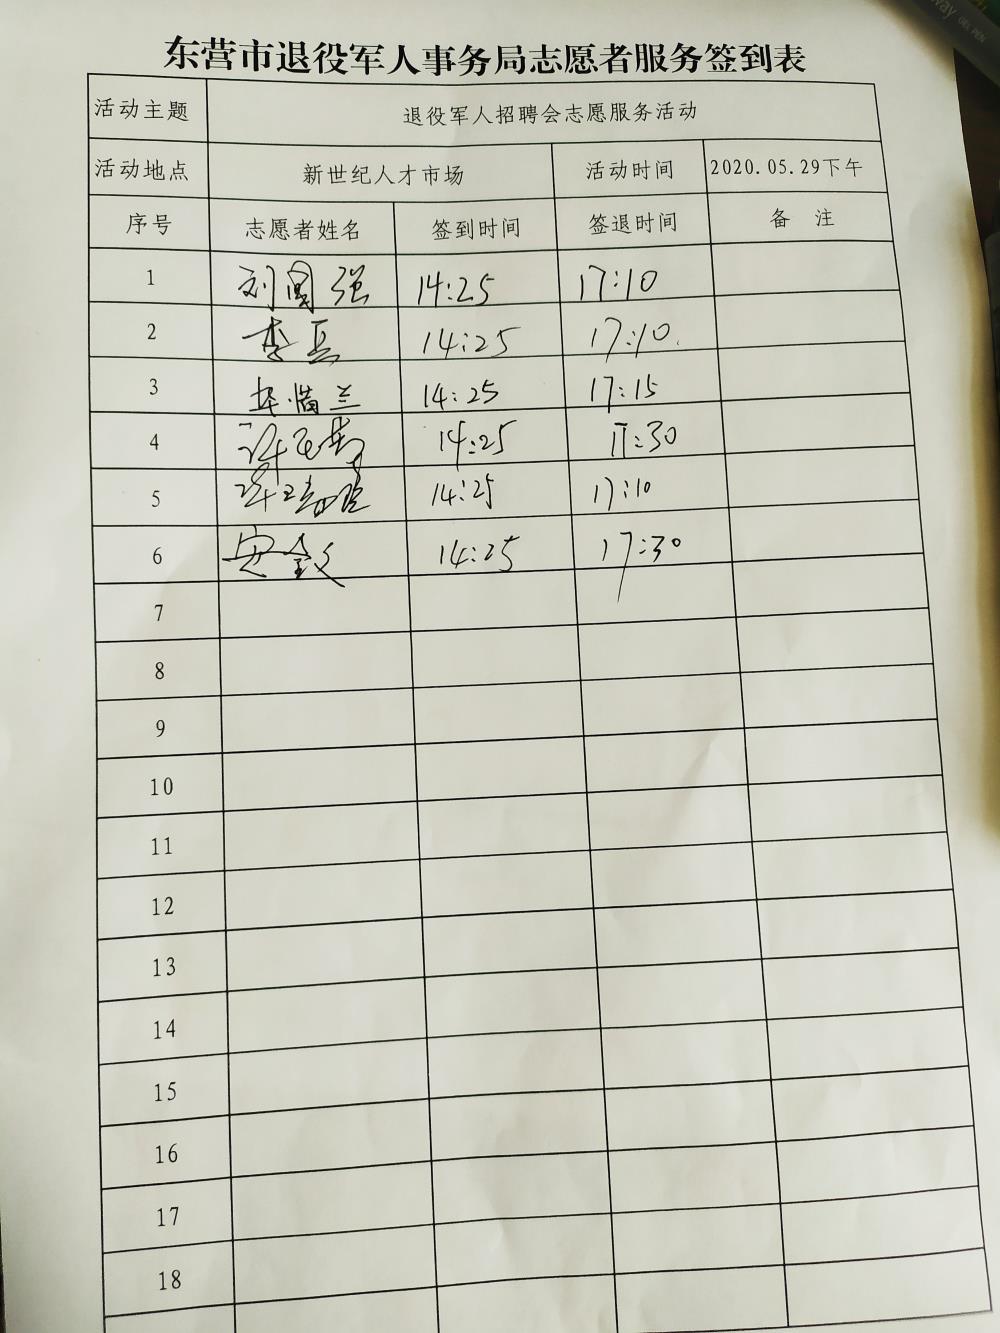 东营市退役军人事务局志愿者服务签到表
活动主题 退役军人招聘会志愿服务活动
活动地点 新世纪人才市场 活动时间 2020.05.29下午
序号 志愿者姓名 签到时间 签退时间 备 注
1 刘国强 14:25 17:10
2 14:25 17:10
3 14:25 17:15
4 14:25 17:30
5 14:25 17:10
6 14:25 17:30
7
8
9
10
11
12
13
14
15
16
17
18